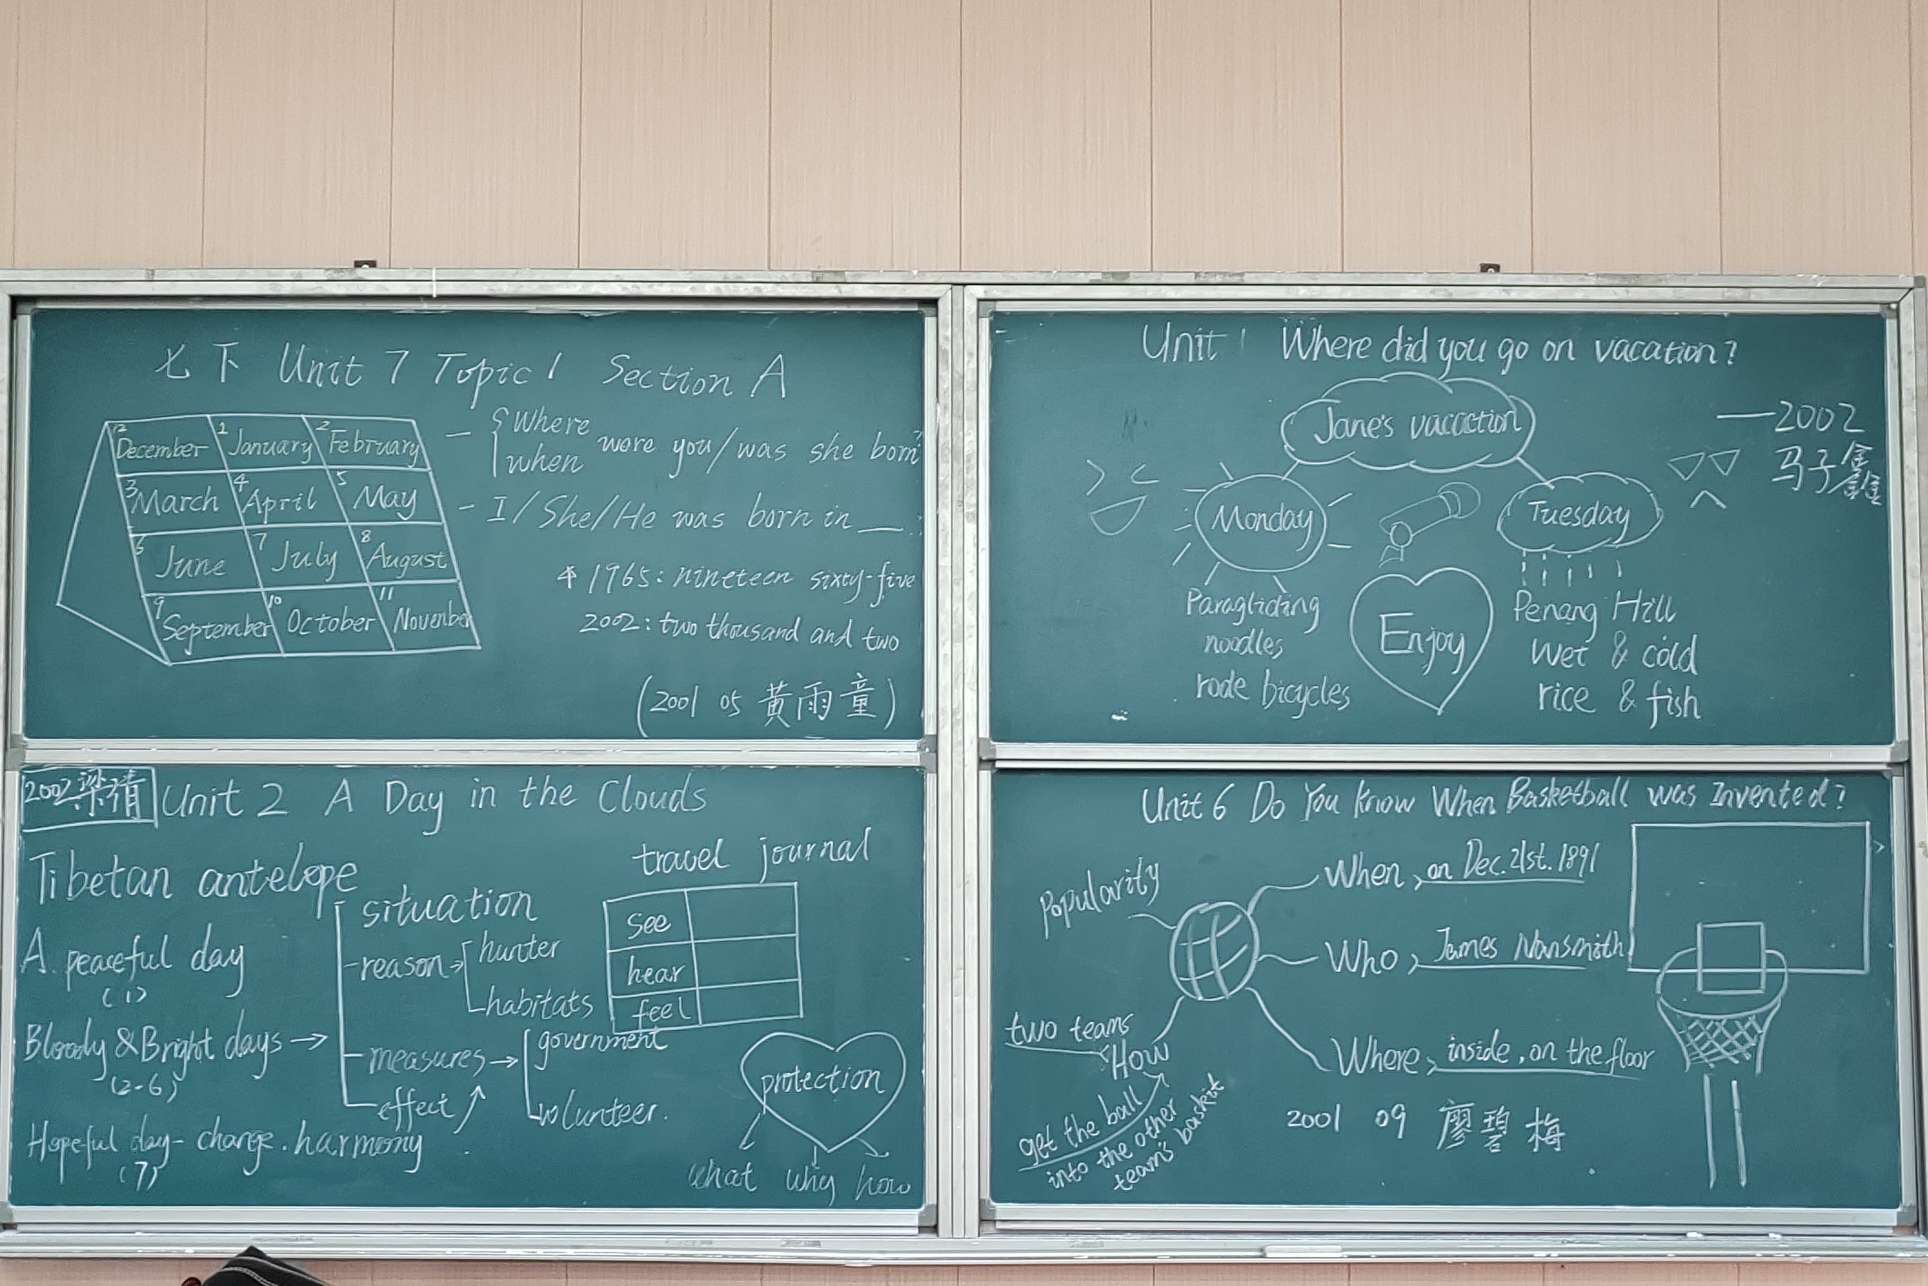 七下 Unit 7 Topic 1 Section A
12 December 1 January 2 February
3 March 4 April 5 May
6 June 7 July 8 August
9 September 10 October 11 November
— { Where
when were you/was she born?
- I/She/He was born in __.
1965: nineteen sixty-five
2002: two thousand and two
(2001 05 黄雨童)
Unit 1 Where did you go on vacation?
Jane's vacaction
—2002
马子鑫
Monday
Tuesday
Paragliding
noodles
rode bicycles
Enjoy
Penang Hill
wet & cold
rice & fish
2002梁清
Unit 2 A Day in the Clouds
Tibetan antelope
A peaceful day
(1)
Bloody & Bright days →
(2-6)
Hopeful day - change. harmony
(7)
situation
reason → hunter
habitats
measures → government
volunteer.
effect
travel journal
see
hear
feel
protection
what why how
Unit 6 Do You Know When Basketball was Invented?
Popularity
When, on Dec. 21st. 1891
Who, James Nansmith
Where, inside, on the floor
two teams
How
get the ball
into the other
team's basket
2001 09 廖碧梅